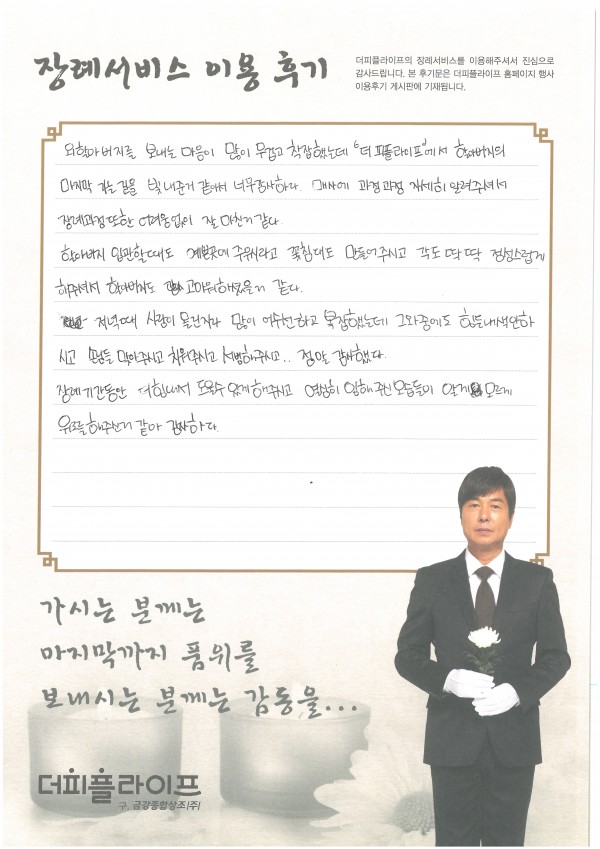 장례서비스 이용 후기
더피플라이프의 장례서비스를 이용해주셔서 진심으로
감사드립니다. 본 후기문은 더피플라이프 홈페이지 행사
이용후기 게시판에 기재됩니다.
외할아버지를 보내는 마음이 많이 무겁고 착잡했는데 "더 피플라이프"에서 할아버지의
마지막 가는 길을 빛내준거 같아서 너무 감사하다. 매사에 과정과정 자세히 알려주셔서
장례과정또한 어려움없이 잘 마친거 같다.
할아버지 입관할때도 예쁜곳에 주무시라고 꽃침대도 만들어주시고 각도 딱딱 정성스럽게
해주셔서 할아버지도 고마워하셨을거 같다.
저녁때 사람이 몰린지라 많이 어수선하고 복잡했는데 그와중에도 힘든내색안하
시고 손님들 맞아주시고 치워주시고 서빙해주시고.. 정말 감사했다.
장례기간동안 더 힘내서 도울수 있게 해주시고 열심히 임해주신 모습들이 알게 모르게
위로를 해주신거 같아 감사하다.
가시는 분께는
마지막까지 품위를
보내시는 분께는 감동을...
더피플라이프
구. 금강종합상조(주)